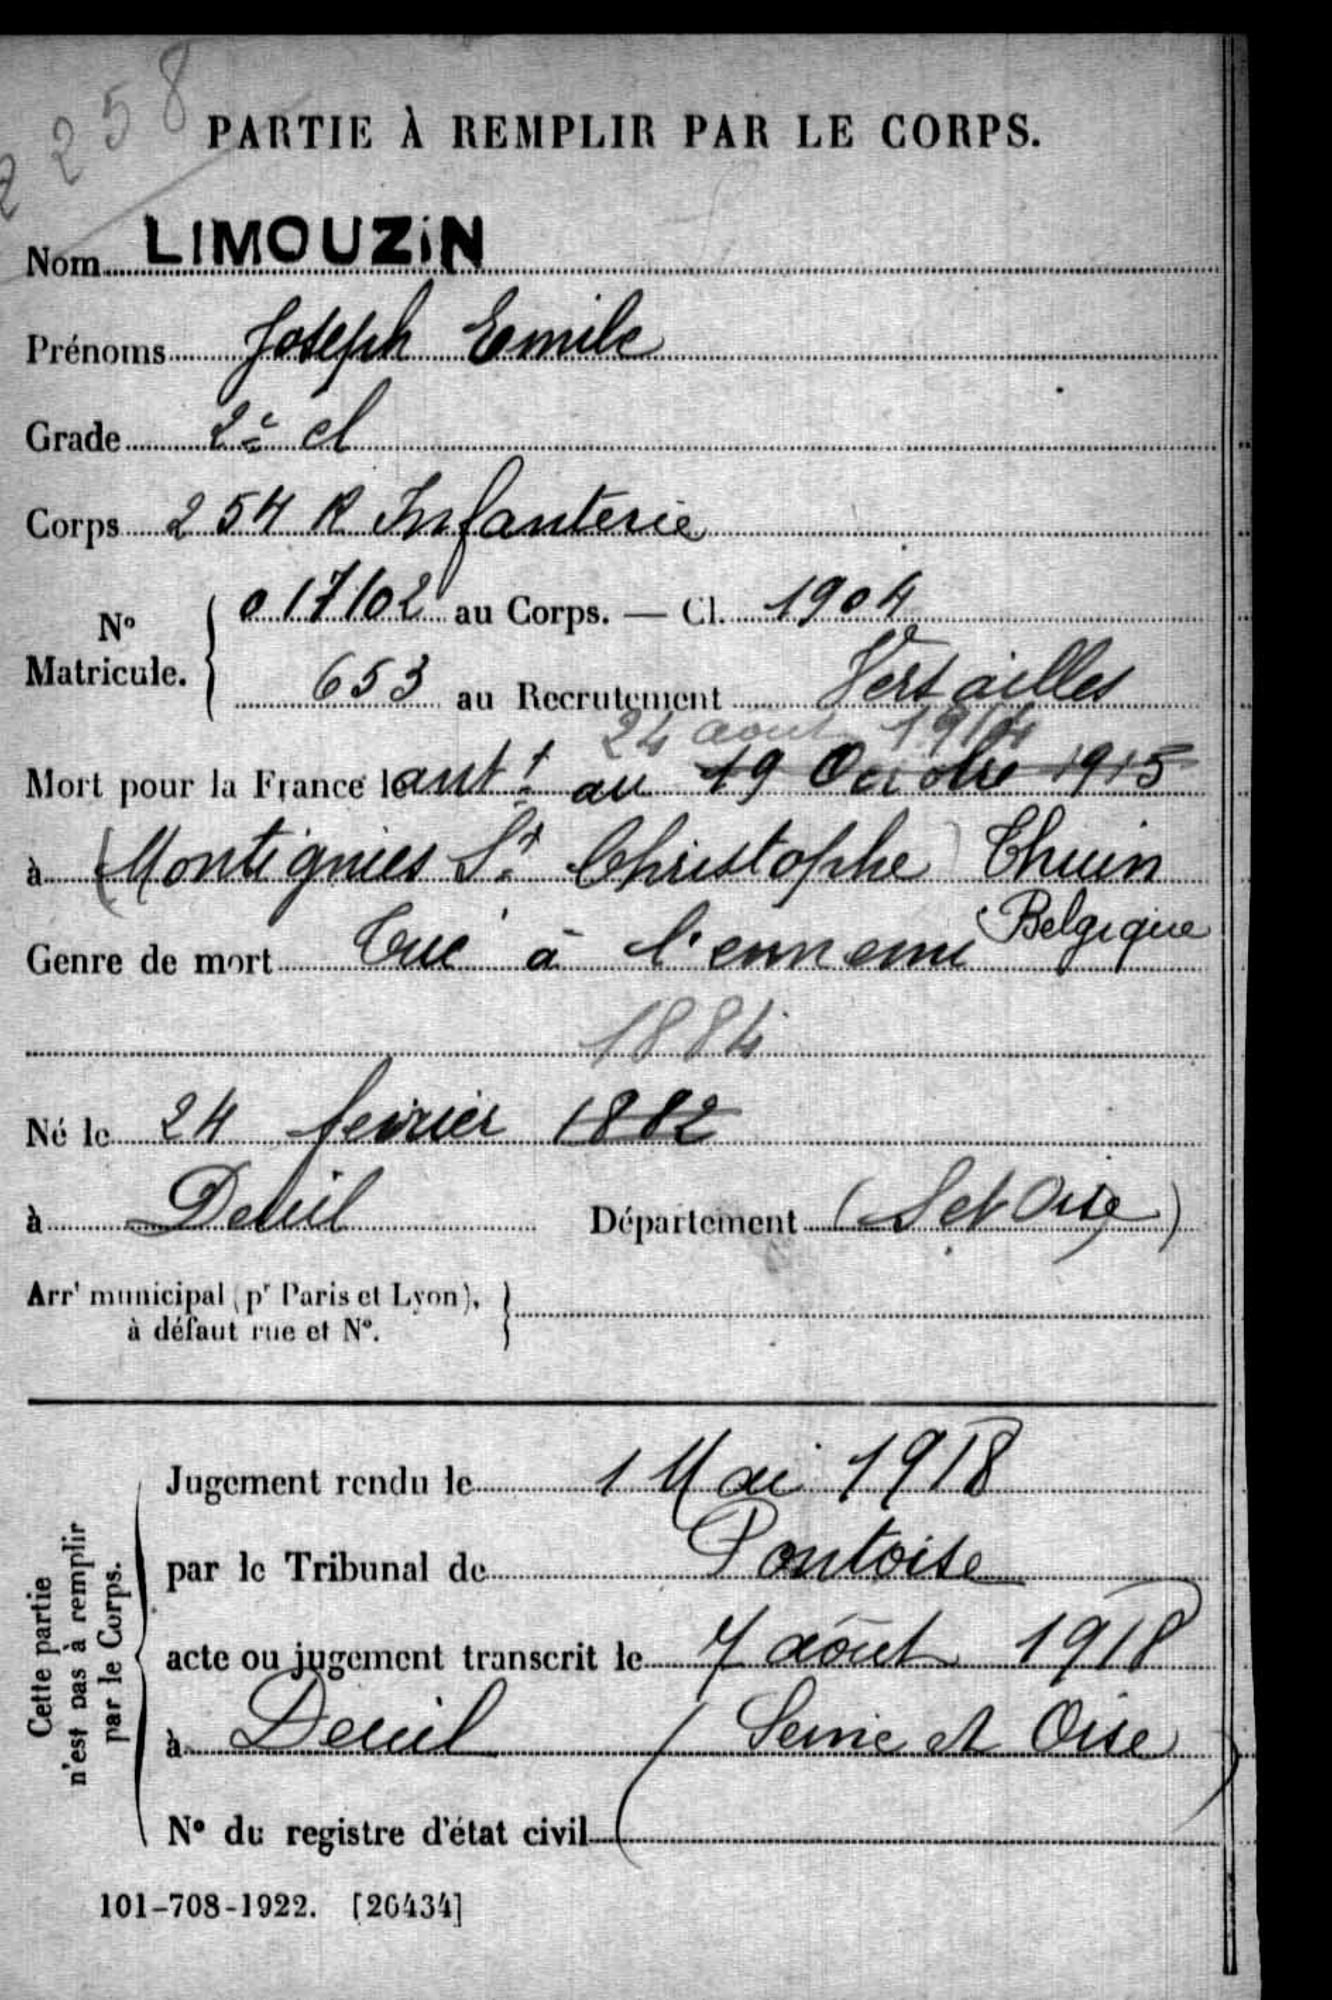 2258
PARTIE À REMPLIR PAR LE CORPS.
Nom LIMOUZIN
Prénoms Joseph Emile
Grade 2e cl
Corps 254 R Infanterie
No Matricule. { 017102 au Corps. — Cl. 1904
653 au Recrutement Versailles
24 aout 1914
Mort pour la France le antt au 19 Octobre 1915
à (Montignies St Christophe) Thuin
Belgique
Genre de mort Tué à l'ennemi
1884
Né le 24 fevrier 1882
à Deuil Département (S et Oise)
Arrt municipal (pr Paris et Lyon), à défaut rue et No. }
Cette partie n'est pas à remplir par le Corps.
Jugement rendu le 1 Mai 1918
par le Tribunal de Pontoise
acte ou jugement transcrit le 7 août 1918
à Deuil (Seine et Oise)
No du registre d'état civil
101-708-1922. [26434]